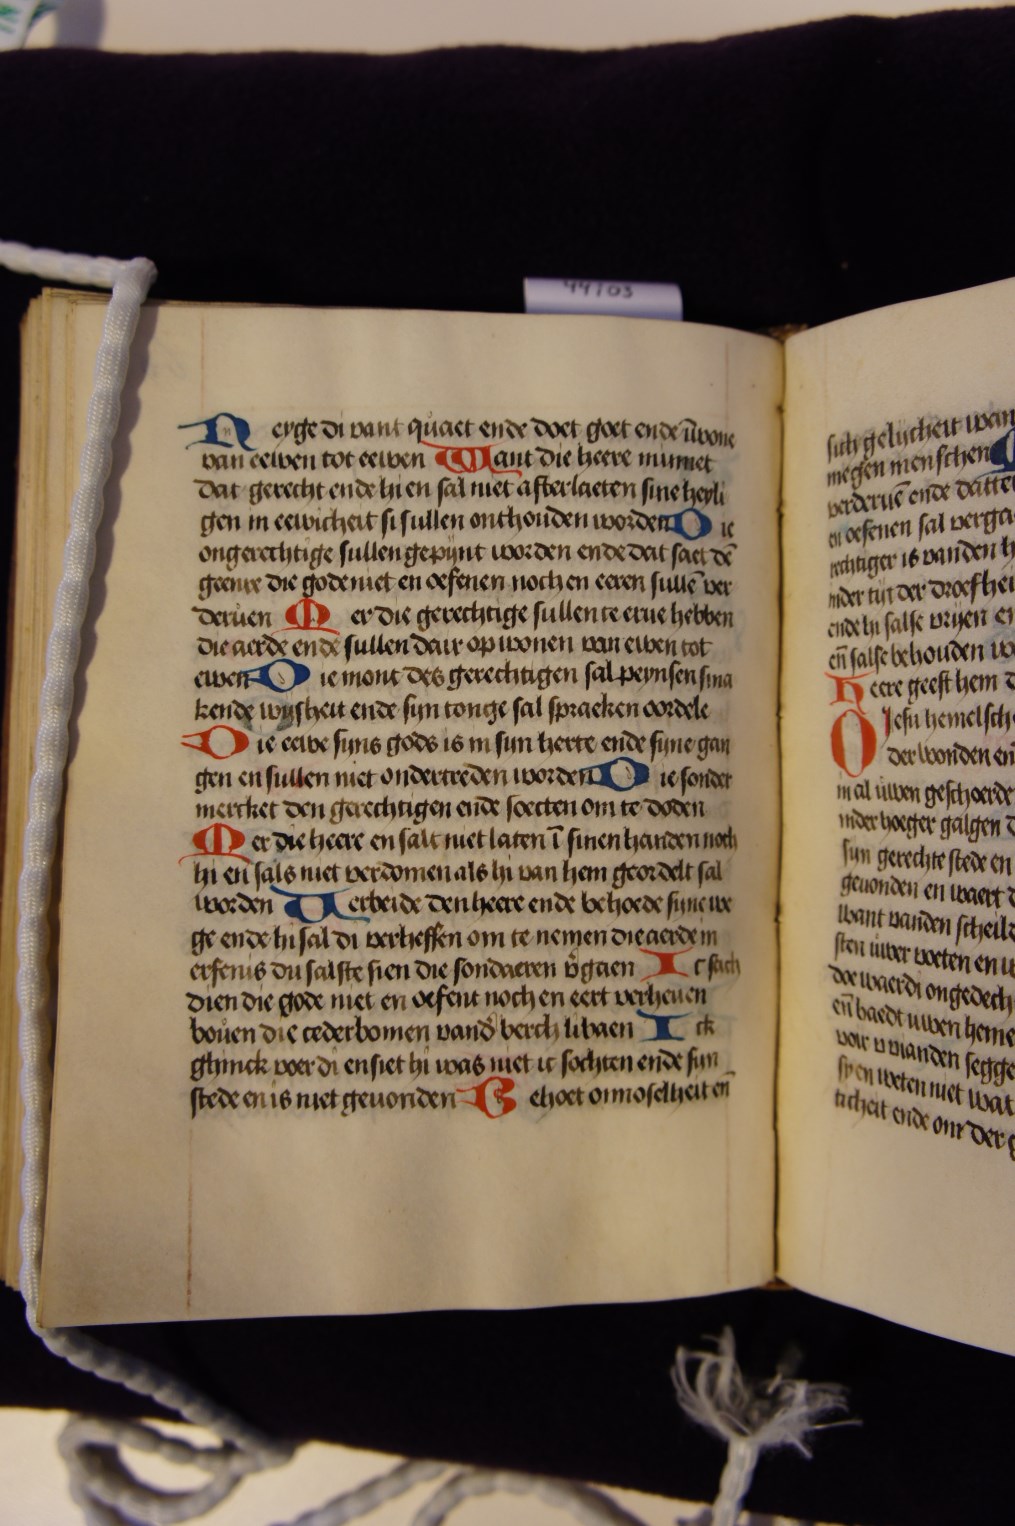 44703
Neyge di vant quaet ende doet goet ende ūwone
van eewen tot eewen Want die heere mumet
dat gerecht ende hi en sal niet afterlaeten sine heyli
gen in eewicheit si sullen onthouden worden Die
ongerechtige sullen gepijnt worden ende dat saet dē
geenre die gode niet en oefenen noch en eeren sullē ver
derven Mer die gerechtige sullen te erve hebben
die aerde ende sullen dair op wonen van ewen tot
ewen Die mont des gerechtigen sal peynsen sma
kende wijsheit ende sijn tonge sal spraeken oordele
Die eewe sijns gods is in sijn herte ende sijne gan
gen en sullen niet ondertreden worden Die sonder
mercket den gerechtigen ende soecten om te doden
Mer die heere en salt niet laten ī sinen handen noch
hi en sals niet verdomen als hi van hem geordelt sal
worden Verbeide den heere ende behoede sijne we
ge ende hi sal di verheffen om te nemen die aerde in
erfenis du salste sien die sondaeren v̄gaen Ic sach
dien die gode niet en oefent noch en eert verheven
boven die cederbomen vand̄ berch libaen Ick
ghinck voer di ensiet hi was niet ic sochten ende sijn
stede en is niet gevonden Behoet onnoselheit en̄
sich gelijcheit wan
megen menschen
verdervē ende datte
en oefenen sal verga
rechtiger is vanden h
inder tijt der droefhei
ende hi salse vrijen en
en̄ salse behouden wo
Heere geeft hem
O Jesu hemelsch
der wonden en
in al uwen geschoerde
inder hoeger galgen
sijn gerechte stede en
gevonden en waert
want vanden scheil
sten uwer voeten en
doe waerdi ongedech
en̄ baedt uwen heme
voir u vianden segge
sy en weten niet wat
ticheit ende om der g